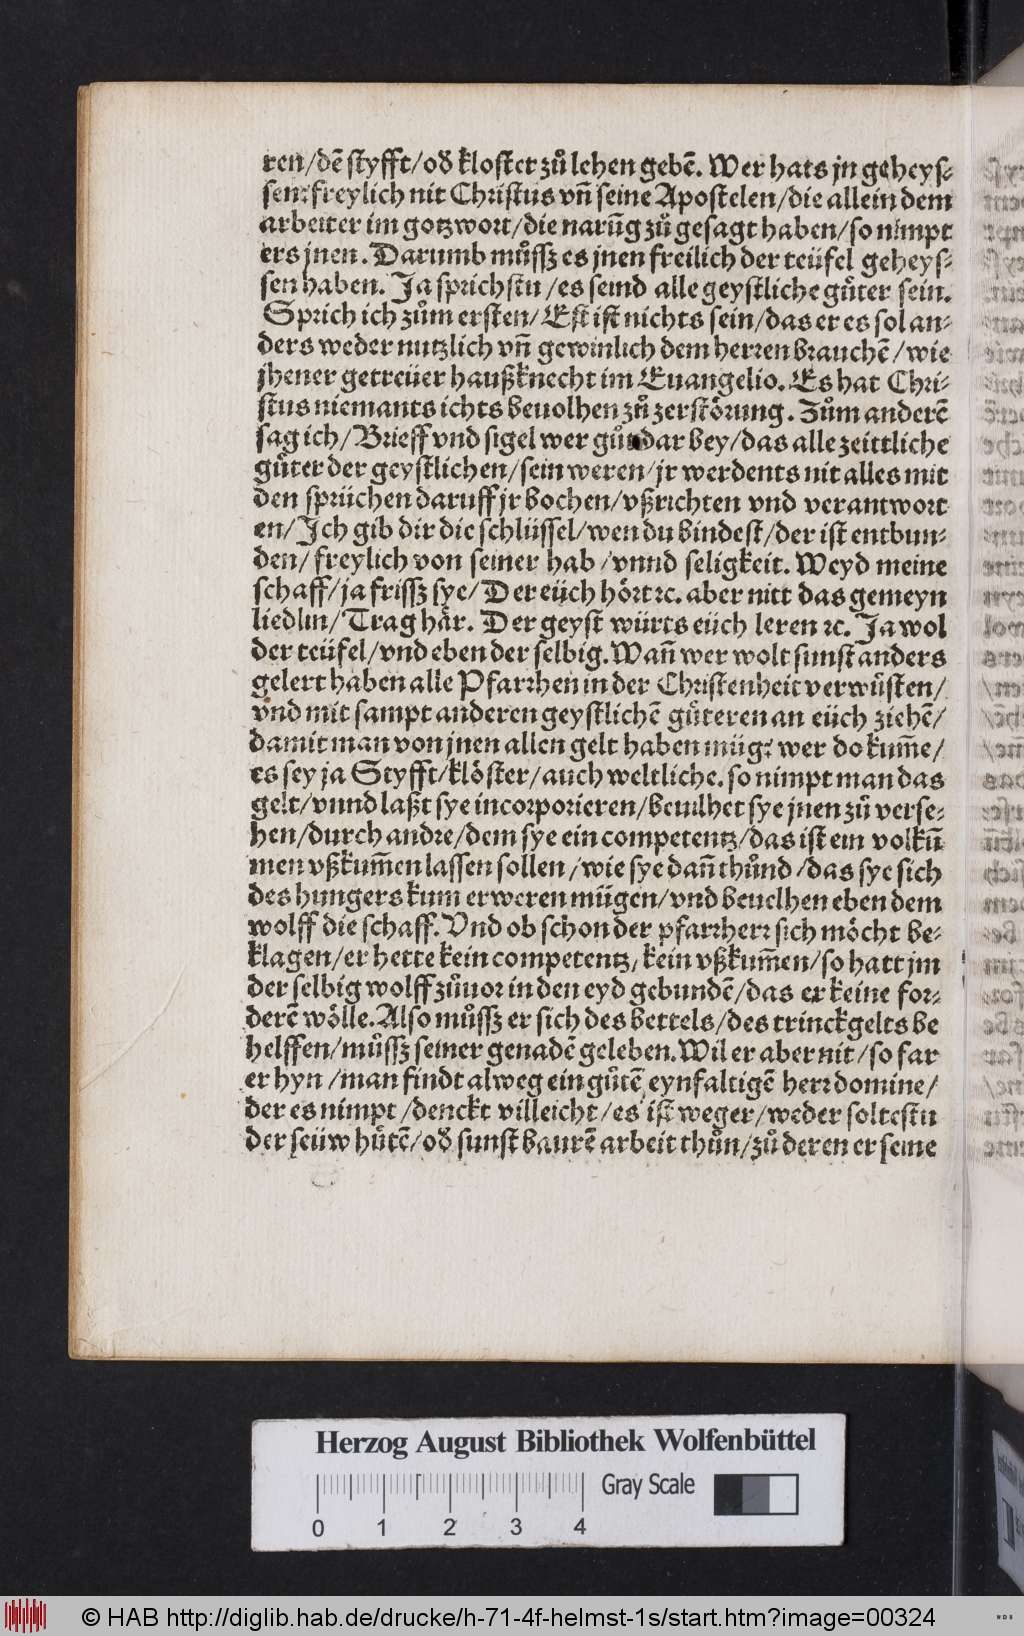 ren/dẽ styfft/oð kloster zů lehen gebẽ. Wer hats jn geheys⸗
sen: freylich nit Christus vñ seine Apostelen/die allein dem
arbeiter im gotzwort/die narũg zů gesagt haben/so nimpt
ers jnen. Darumb můſſz es jnen freilich der teüfel geheys⸗
sen haben. Ja sprichstu/es seind alle geystliche gůter sein.
Sprich ich zům ersten/Est ist nichts sein/das er es sol an⸗
ders weder nutzlich vñ gewinlich dem herren brauchẽ/wie
jhener getreüer haußknecht im Euangelio. Es hat Chri⸗
stus niemants ichts beuolhen zů zerstörung. Zům anderẽ
sag ich/Brieff vnd sigel wer gůt dar bey/das alle zeittliche
gůter der geystlichen/sein weren/jr werdents nit alles mit
den sprüchen daruff jr bochen/vßrichten vnd verantwort
en/Ich gib dir die schlüssel/wen du bindest/der ist entbun⸗
den/freylich von seiner hab/vnnd seligkeit. Weyd meine
schaff/ja frissz sye/Der eüch hört ꝛc. aber nitt das gemeyn
liedlin/Trag här. Der geyst würts eüch leren ꝛc. Ja wol
der teüfel/vnd eben der selbig. Wañ wer wolt sunst anders
gelert haben alle Pfarrhen in der Christenheit verwůsten/
vnd mit sampt anderen geystlichẽ gůteren an eüch ziehẽ/
damit man von jnen allen gelt haben müg: wer do kum̃e/
es sey ja Styfft/klöster/auch weltliche. so nimpt man das
gelt/vnnd laßt sye incorporieren/beuilhet sye jnen zů verse⸗
hen/durch andre/dem sye ein competentz/das ist ein volkũ
men vßkum̃en lassen sollen/wie sye dañ thůnd/das sye sich
des hungers kum erweren mügen/vnd beuelhen eben dem
wolff die schaff. Vnd ob schon der pfarrherr sich möcht be⸗
klagen/er hette kein competentz, kein vßkum̃en/so hatt jm
der selbig wolff zůuor in den eyd gebundẽ/das er keine for⸗
derẽ wölle. Also můſſz er sich des bettels/des trinckgelts be
helffen/můſſz seiner genadẽ geleben. Wil er aber nit/so far
er hyn/man findt alweg ein gůtẽ eynfaltigẽ herr domine/
der es nimpt/denckt villeicht/es ist weger/weder soltestu
der seüw hůtẽ/oð sunst baurẽ arbeit thůn/zů deren er seine
Herzog August Bibliothek Wolfenbüttel
Gray Scale
0 1 2 3 4
© HAB http://diglib.hab.de/drucke/h-71-4f-helmst-1s/start.htm?image=00324